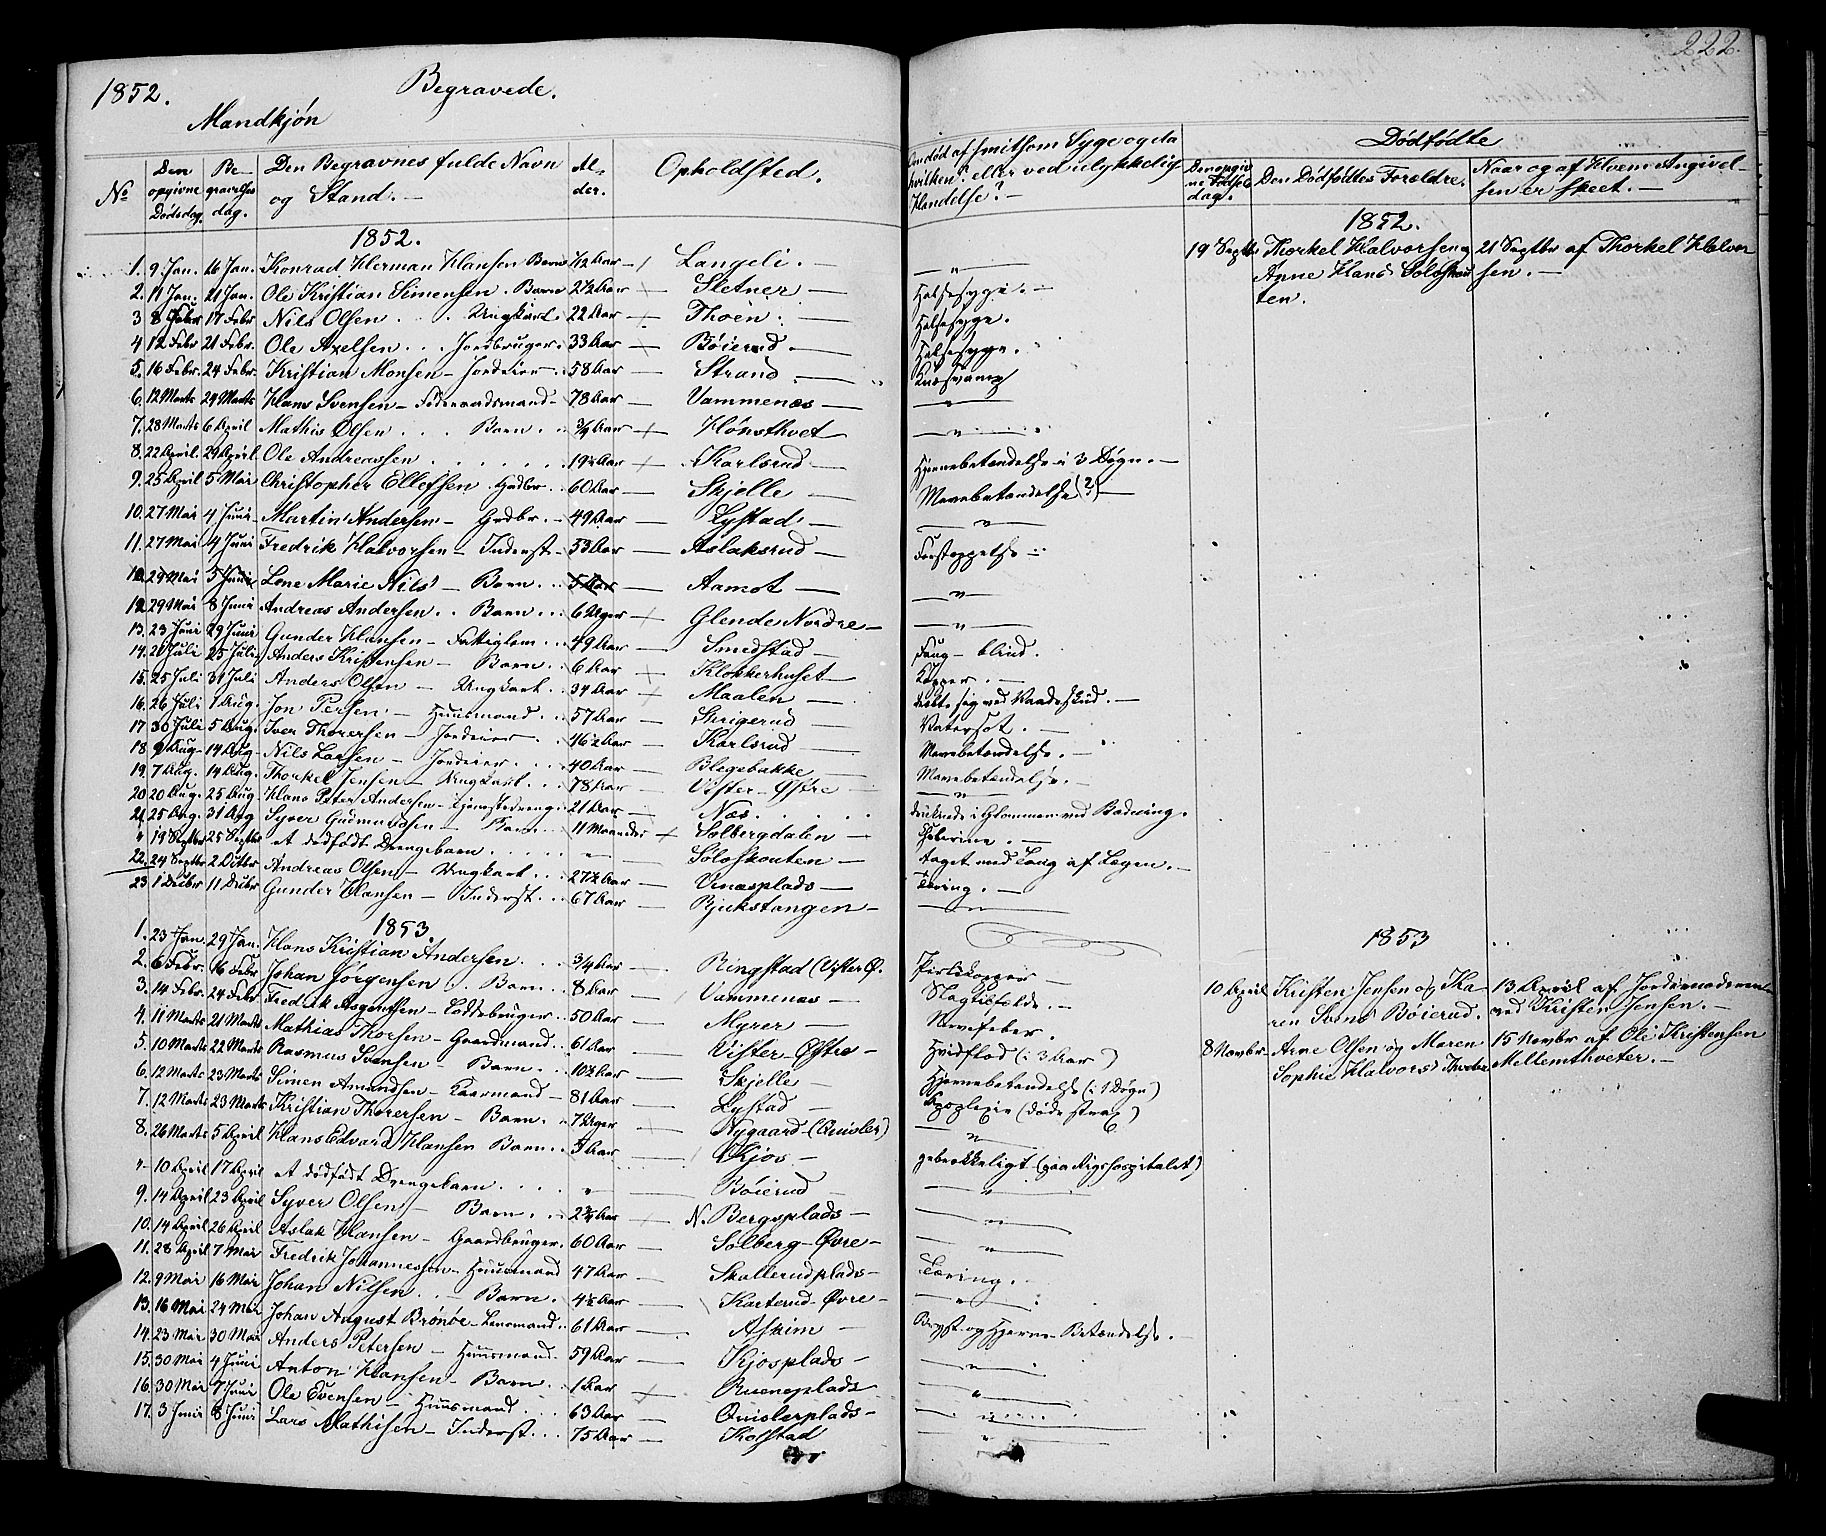 222.
1852. Begravede.
Mandkjøn
No Den opgivne Dødsdag. Begravelses dag. Den Begravnes fulde Navn og Stand. — Alder. Opholdsted. Om død af smitsom Syge og da hvilken? eller ved ulykkelig Hændelse? — Dødfødte
Den opgivne Fødselsdag. Den Dødfødtes Forældre. Naar og af Hvem Angivelsen er skeet. —
1852. 1852.
1. 9 Jan. 16 Jan. Konrad Herman Hansen Barn 1/12 Aar — Langeli. — — " — 19 Septbr Thorkel Halvorsen og 21 Septbr af Thorkel Halvor
2. 11 Jan. 21 Jan. Ole Kristian Simensen. Barn 2½ Aar — Sletner — Halsesyge. — Anne Hans Soloskou sen. —
3 8 Febr 17 Febr Nils Olsen . . . Ungkarl. 22 Aar — Thoen. — Halsesyge. ten.
4 12 Febr 21 Febr. Ole Axelsen . . . Jordbruger. 33 Aar — Bøierud. — Halsesyge.
5. 16 Febr. 24 Febr. Kristian Monsen — Jordeier. 58 Aar — Strand —
6. 12 Marts 24 Marts Hans Svensen — Føderaadsmand — 78 Aar — Vammenæs — — " —
7. 28 Marts 6 April Mathis Olsen . . . Barn . . ¾ Aar — Hønsthvet — " —
8. 22 April. 29 April. Ole Andreassen . . . . . . 19½ Aar — Karlsrud — Hjernebetændelse i 3 Døgn. —
9. 25 April 5 Mai Christopher Ellefsen. Gudbr. . . 60 Aar — Skjelle — Mavebetændelse (?) —
10. 27 Mai 4 Juni Martin Andersen — Gudbr. — 49 Aar — Lystad — — " —
11. 27 Mai 4 Juni Fredrik Halvorsen — Inderst — 53 Aar — Aslaksrud — Forstoppelse
12 29 Mai 5 Juni Lene Marie Nils — Barn . . 5 Aar — Aamot — — " —
12. 29 Mai 8 Juni Andreas Andersen . . Barn . . 6 Uger — Glende Nordre — — " —
13. 23 Juni 29 Juni Gunder Hansen — Fattiglem . . 49 Aar — Smedstad — Svag — blind.
14. 20 Juli 25 Juli Anders Kristensen — Barn . . 6 Aar — Klokkerhuset — Kopper. —
15. 25 Juli 31 Juli Anders Olsen — Ungkarl . . 34 Aar — Maalen — sig ved Vaadeskud. —
16. 26 Juli 1 Aug. Jon Persen — Huusmand . . 57 Aar — Skrigerud — Vatersot. —
17. 30 Juli 5 Aug. Iver Thoresen — Jordeier . 46½ Aar — Karlsrud — Mavebetændelse. —
18. 9 Aug. 14 Aug. Nils Larsen — Jordeier . . . 40 Aar — Blegebakke — Mavebetændelse. —
19. 7 Aug. 14 Aug. Thorkel Jensen — Ungkarl. . . 78 Aar — Vister Østre — — " —
20. 20 Aug. 25 Aug. Hans Peter Andersen — Tjenestedreng . 21 Aar — Næs . . . . . druknede i Glommen ved Badning.
21. 25 Aug. 31 Aug. Syver Gudmundsen — Barn . . . 11 Maaneder — Solbergdalen —
" 19 Septbr 25 Septbr et dødfødt Drengebarn . . . . . — " — Soloskouten — taget med Tang af Lægen. —
22. 24 Septbr 2 Octbr Andreas Olsen — Ungkarl . . 27½ Aar — Vinæsplads — Tæring. —
23. 1 Decbr 11 Decbr Gunder Hansen — Inderst . . . 67 Aar — Rjukstangen — — " —
1853. 1853
1. 23 Jan. 29 Jan. Hans Kristian Andersen . . . ¾ Aar — Ringstad (Vister Ø.
2. 6 Febr. 16 Febr Johan Jørgensen . . Barn . . 8 Aar — Vammenæs — Slagtilfælde. — 10 April Kristen Jensen og Ka 13 April af
3. 14 Febr. 24 Febr Fredrik Asgautsen — Loddebruger . 50 Aar — Myrer — Nervefeber. ren Svens Bøierud. ved Kristen Jensen. —
4. 11 Marts 21 Marts Mathias Thorsen — Gaardmand . . 61 Aar — Vister Østre — Hvidflod (i 3 Aar) 8 Novbr Arne Olsen og Maren 15 Novbr af Ole Kristensen
5. 10 Marts 22 Marts Rasmus Svensen — Barn . . 10½ Aar — Skjelle Hjernebetændelse (i 1 Døgn) Sophie Halvors Mellemthveter. —
6. 12 Marts 23 Marts Simen Amundsen — Kaarmand — 81 Aar — Lystad — Apoplexie (døde strax)
7. 12 Marts 23 Marts Kristian Thoresen — Barn . . 7 Uger — Nygaard (Onisler) — " —
8. 26 Marts 5 April Hans Edvard Hansen Barn . . 5 Aar — Kjos — (paa Rigshospitalet)
" 10 April 17 April et dødfødt Drengebarn . . . . " Bøierud — — " —
9. 14 April 23 April Syver Olsen — Barn . . . 2¾ Aar — N. Bergsplads — — " —
10. 14 April 26 April Aslak Hansen — Gaardbruger. 60 Aar — Solberg Øvre — — " —
11. 28 April 7 Mai Fredrik Johannessen — Huusmand 47 Aar — Skallerudplads — Tæring. —
12. 9 Mai 16 Mai Johan Nilsen . . — Barn . 4½ Aar — Karterud Øvre — — " —
13. 16 Mai 24 Mai Johan August Brønøe — Lensmand . . 61 Aar — Askim — Bryst- og Hjerne-Betændelse. —
14. 23 Mai 30 Mai Anders Petersen — Huusmand . 59 Aar — Kjosplads — — " —
15. 30 Mai 4 Juni Anton Hansen — Barn . . 1 Aar — Rueneplads — " —
16. 30 Mai 7 Juni Ole Evensen — Huusmand . . 63 Aar — Qvislerplads — — " —
17. 3 Juni 8 Juni Lars Mathisen — Inderst . . . 75 Aar — Kolstad — " —